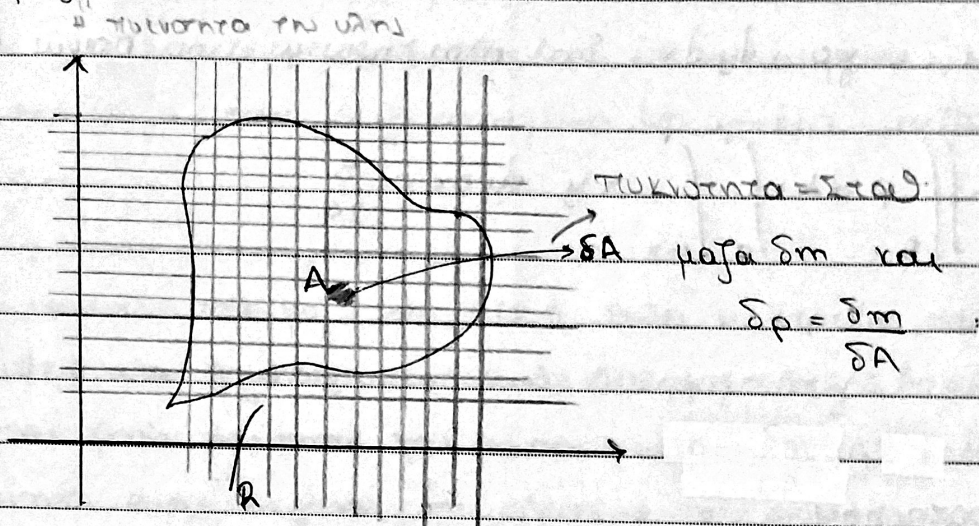 " πυκνοτητα της υλης
πυκνοτητα = Σταθ.
A
δA μαζα δm και
δρ = δm / δA
R